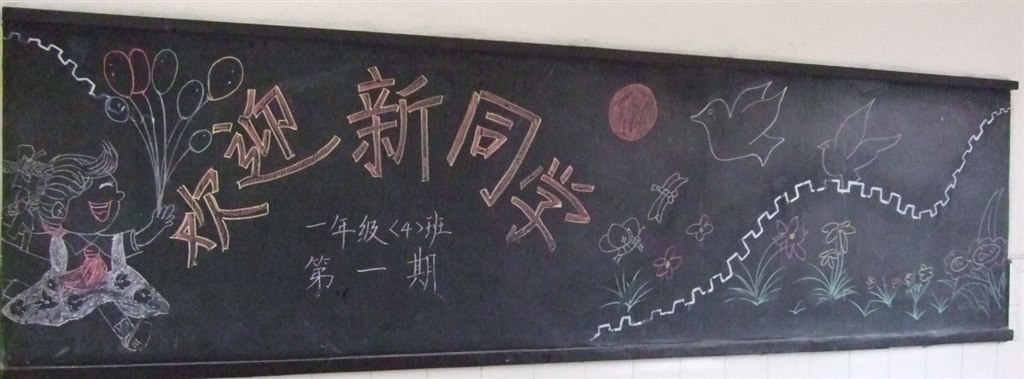 欢迎新同学
一年级<4>班
第一期